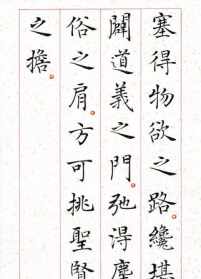 塞得物欲之路纔堪
闢道義之門弛得塵
俗之肩方可挑聖賢
之擔